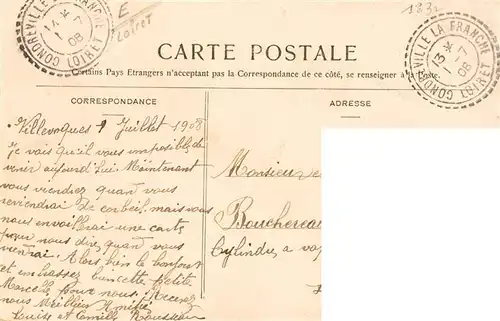 E
Loiret
183
GONDREVILLE LA FRANCHE
14 *
1 - 7
08
LOIRET
GONDREVILLE LA FRANCHE
13 *
1 - 7
08
LOIRET
CARTE POSTALE
Certains Pays Etrangers n'acceptant pas la Correspondance de ce côté, se renseigner à la Poste.
CORRESPONDANCE
Villevoques 1 Juillet 1908
Je vais qu'il vous imposible de
venir aujourd'hui Maintenant
vous viendrez quand vous
reviendrai De Corbeil, mais vous
nous envoillrai une carte
pour nous dire quand vous
viendrai. Alors bien le bonjour
et embassez bien cette petite
Marcelle pour nous. Recevez
nous Meilleur Amitié
Louise et Camille Rousseau
ADRESSE
Monsieur e
Bouchereau
Cylindre a vap